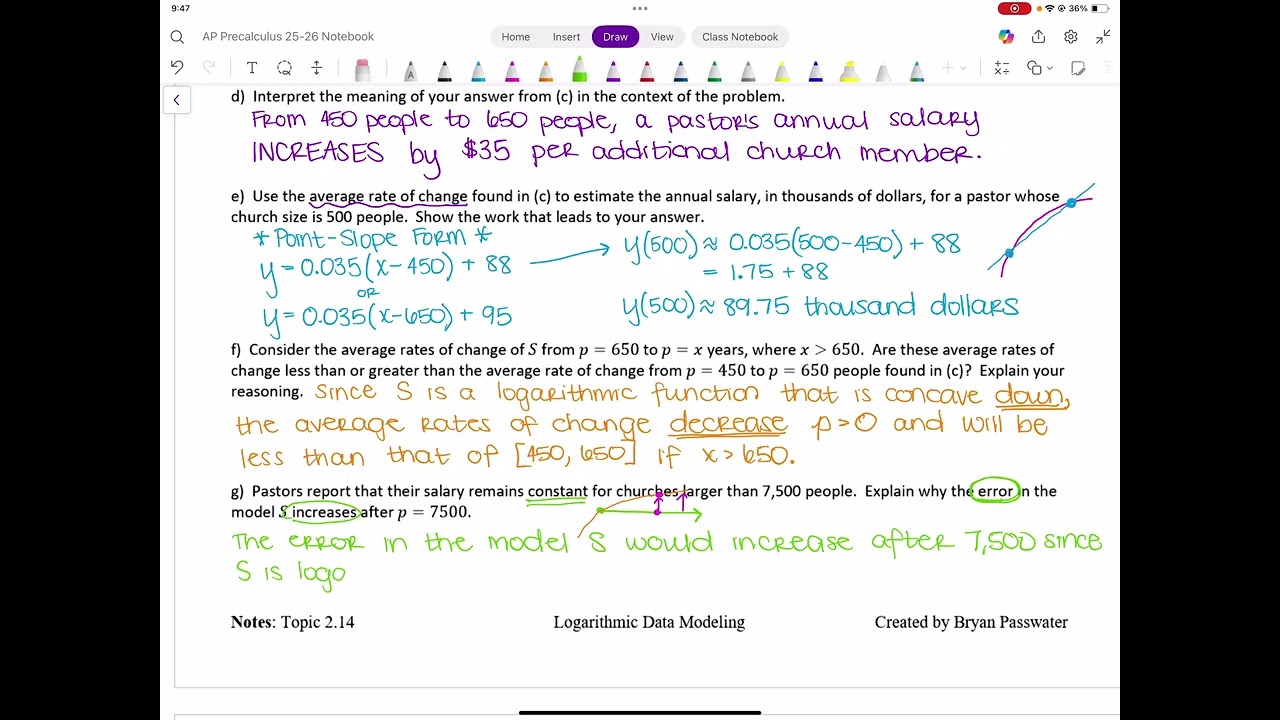 9:47
36%
AP Precalculus 25-26 Notebook
Home Insert Draw View Class Notebook
T
A
d) Interpret the meaning of your answer from (c) in the context of the problem.
From 450 people to 650 people, a pastor's annual salary
INCREASES by $35 per additional church member.
e) Use the average rate of change found in (c) to estimate the annual salary, in thousands of dollars, for a pastor whose
church size is 500 people. Show the work that leads to your answer.
* Point-Slope Form *
y = 0.035(x-450) + 88
OR
y = 0.035(x-650) + 95
y(500) ≈ 0.035(500-450) + 88
= 1.75 + 88
y(500) ≈ 89.75 thousand dollars
f) Consider the average rates of change of S from p = 650 to p = x years, where x > 650. Are these average rates of
change less than or greater than the average rate of change from p = 450 to p = 650 people found in (c)? Explain your
reasoning. Since S is a logarithmic function that is concave down,
the average rates of change decrease p>0 and will be
less than that of [450, 650] if x > 650.
g) Pastors report that their salary remains constant for churches larger than 7,500 people. Explain why the error in the
model S increases after p = 7500.
The error in the model S would increase after 7,500 since
S is logo
Notes: Topic 2.14 Logarithmic Data Modeling Created by Bryan Passwater